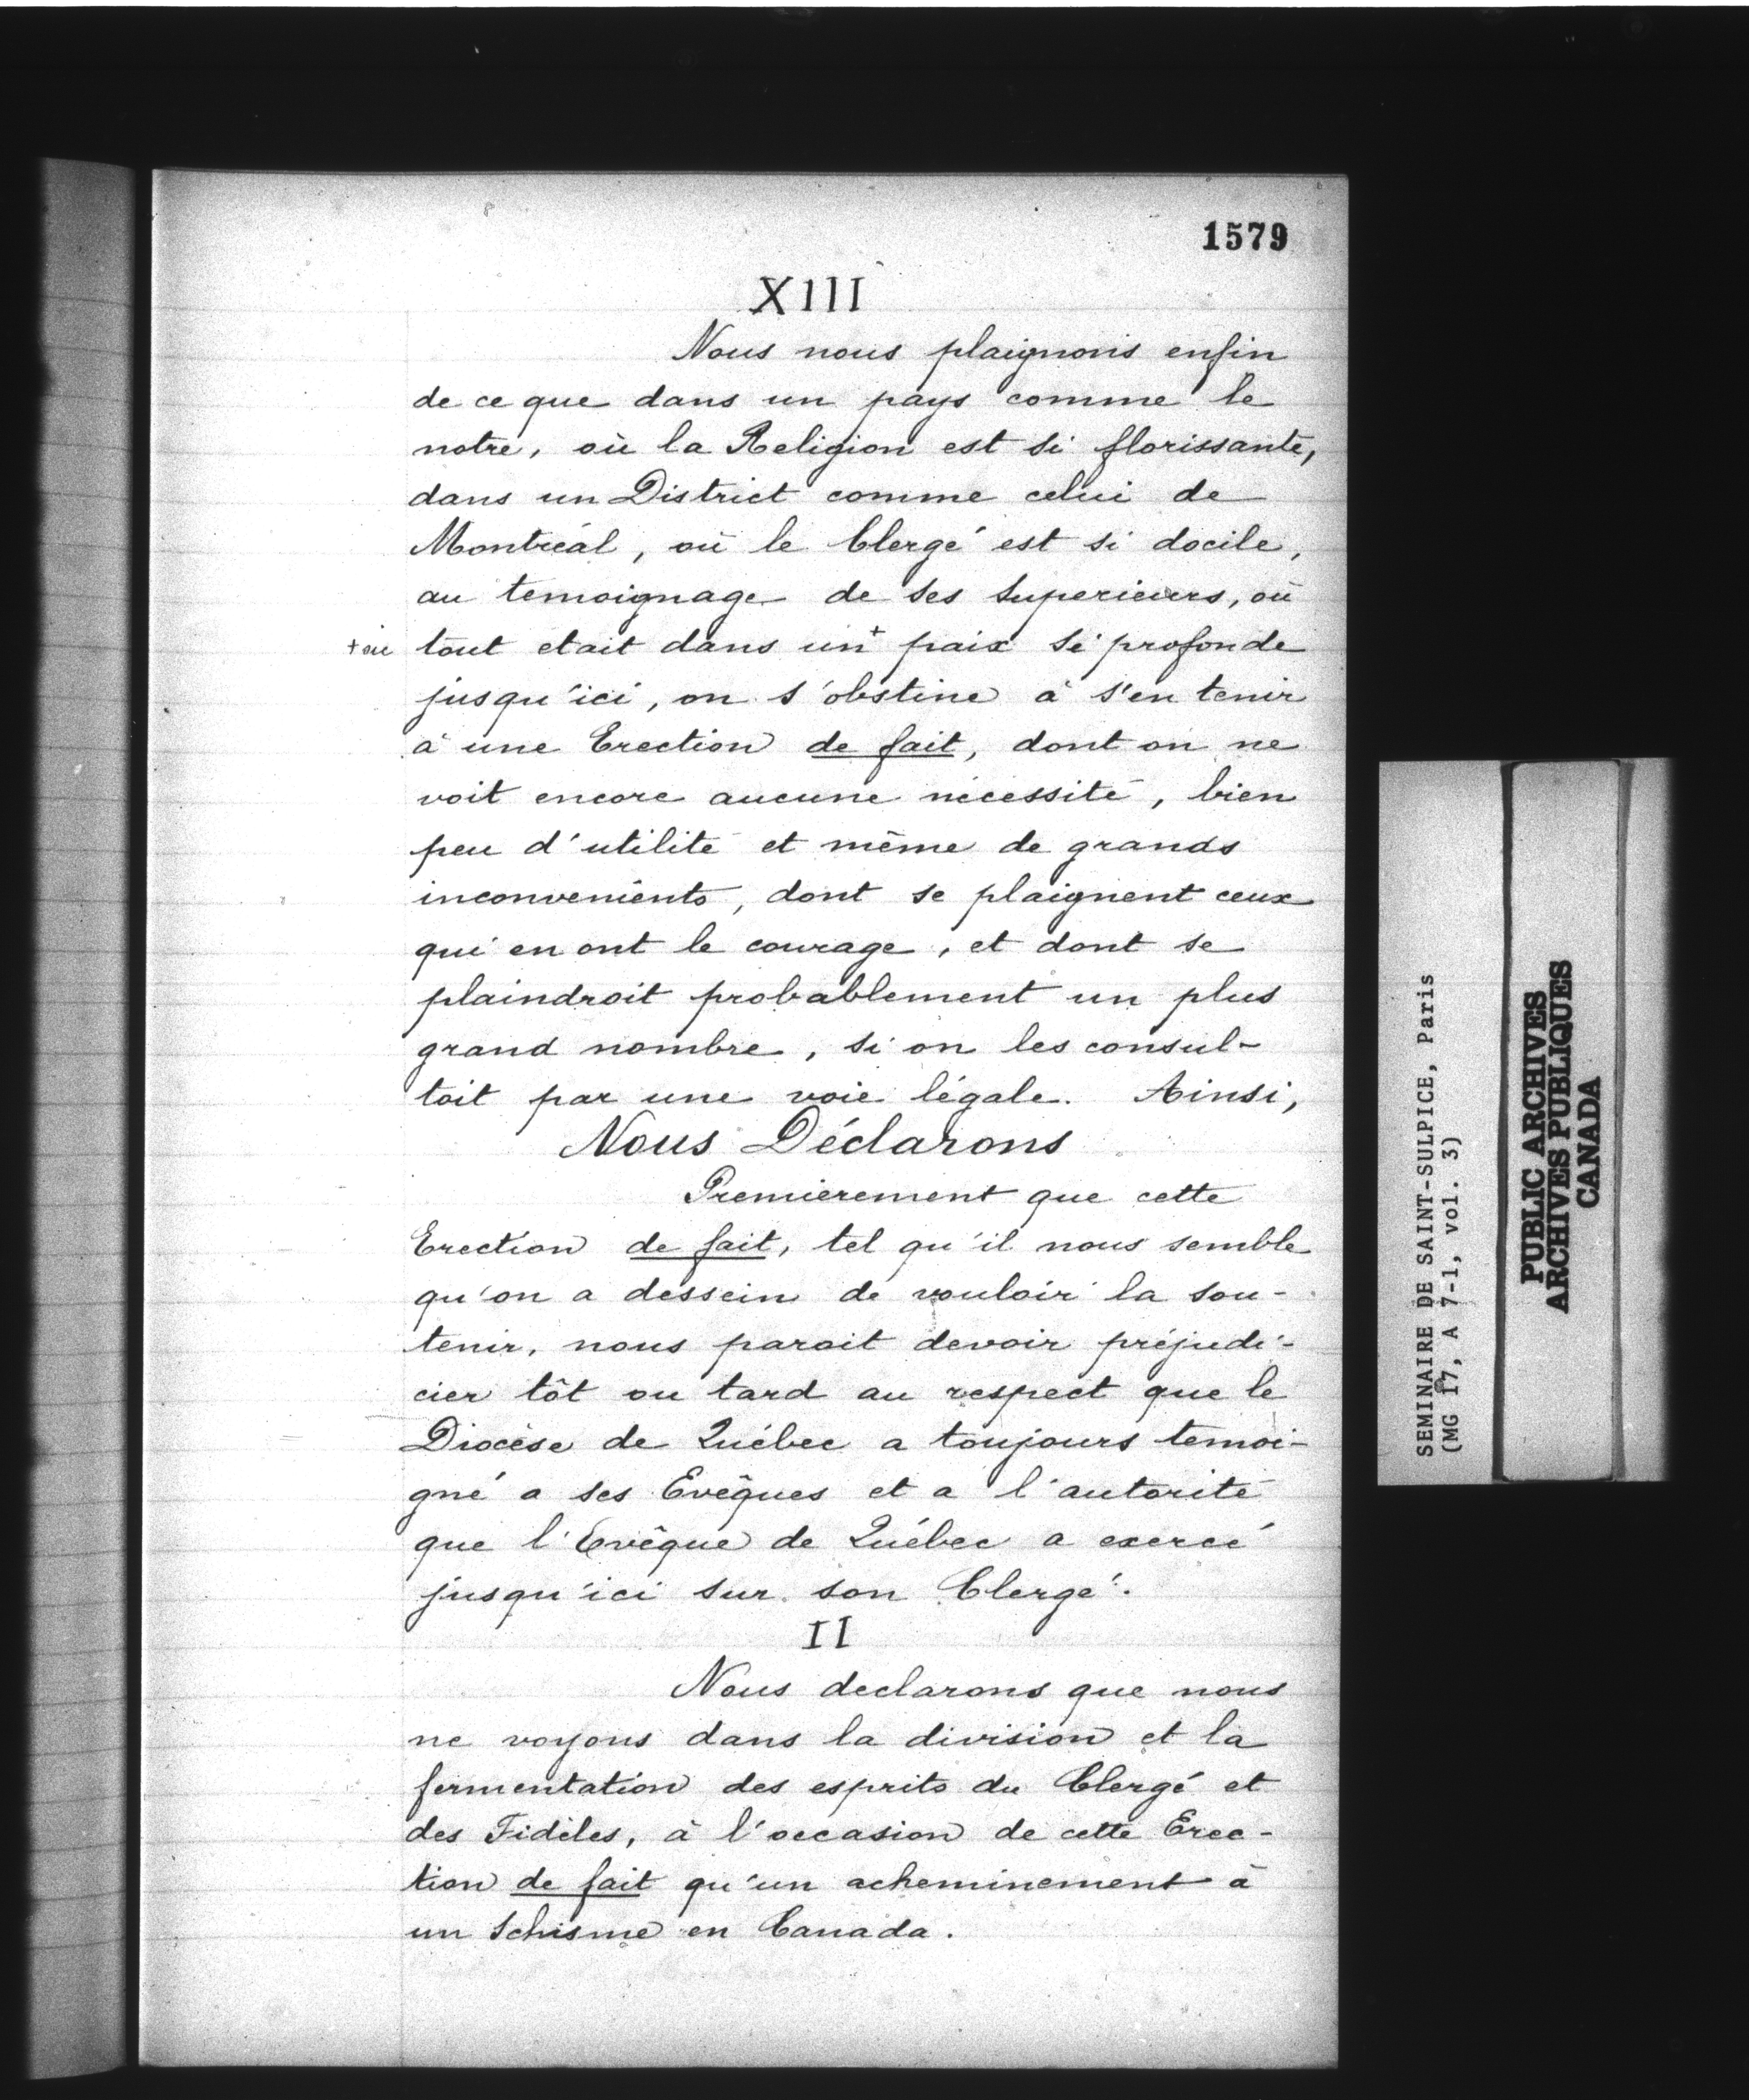 1579
XIII
Nous nous plaignons enfin
de ce que dans un pays comme le
notre, où la Religion est si florissante,
dans un District comme celui de
Montréal, où le Clergé est si docile,
au temoignage de ses superieurs, où
+ou tout etait dans un+ paix si profonde
jusqu'ici, on s'obstine à s'en tenir
à une Erection de fait, dont on ne
voit encore aucune nécessité, bien
peu d'utilité et même de grands
inconvenients, dont se plaignent ceux
qui en ont le courage, et dont se
plaindroit probablement un plus
grand nombre, si on les consul-
toit par une voie légale. Ainsi,
Nous Déclarons
Premièrement que cette
Erection de fait, tel qu'il nous semble
qu'on a dessein de vouloir la sou-
tenir, nous parait devoir préjudi-
cier tôt ou tard au respect que le
Diocèse de Québec a toujours temoi-
gné a ses Evêques et a l'autorité
que l'Evêque de Québec a exercé
jusqu'ici sur son Clergé.
II
Nous declarons que nous
ne voyons dans la division et la
fermentation des esprits du Clergé et
des Fidèles, à l'occasion de cette Erec-
tion de fait qu'un acheminement à
un Schisme en Canada.
SEMINAIRE DE SAINT-SULPICE, Paris
(MG 17, A 7-1, vol. 3)
PUBLIC ARCHIVES
ARCHIVES PUBLIQUES
CANADA